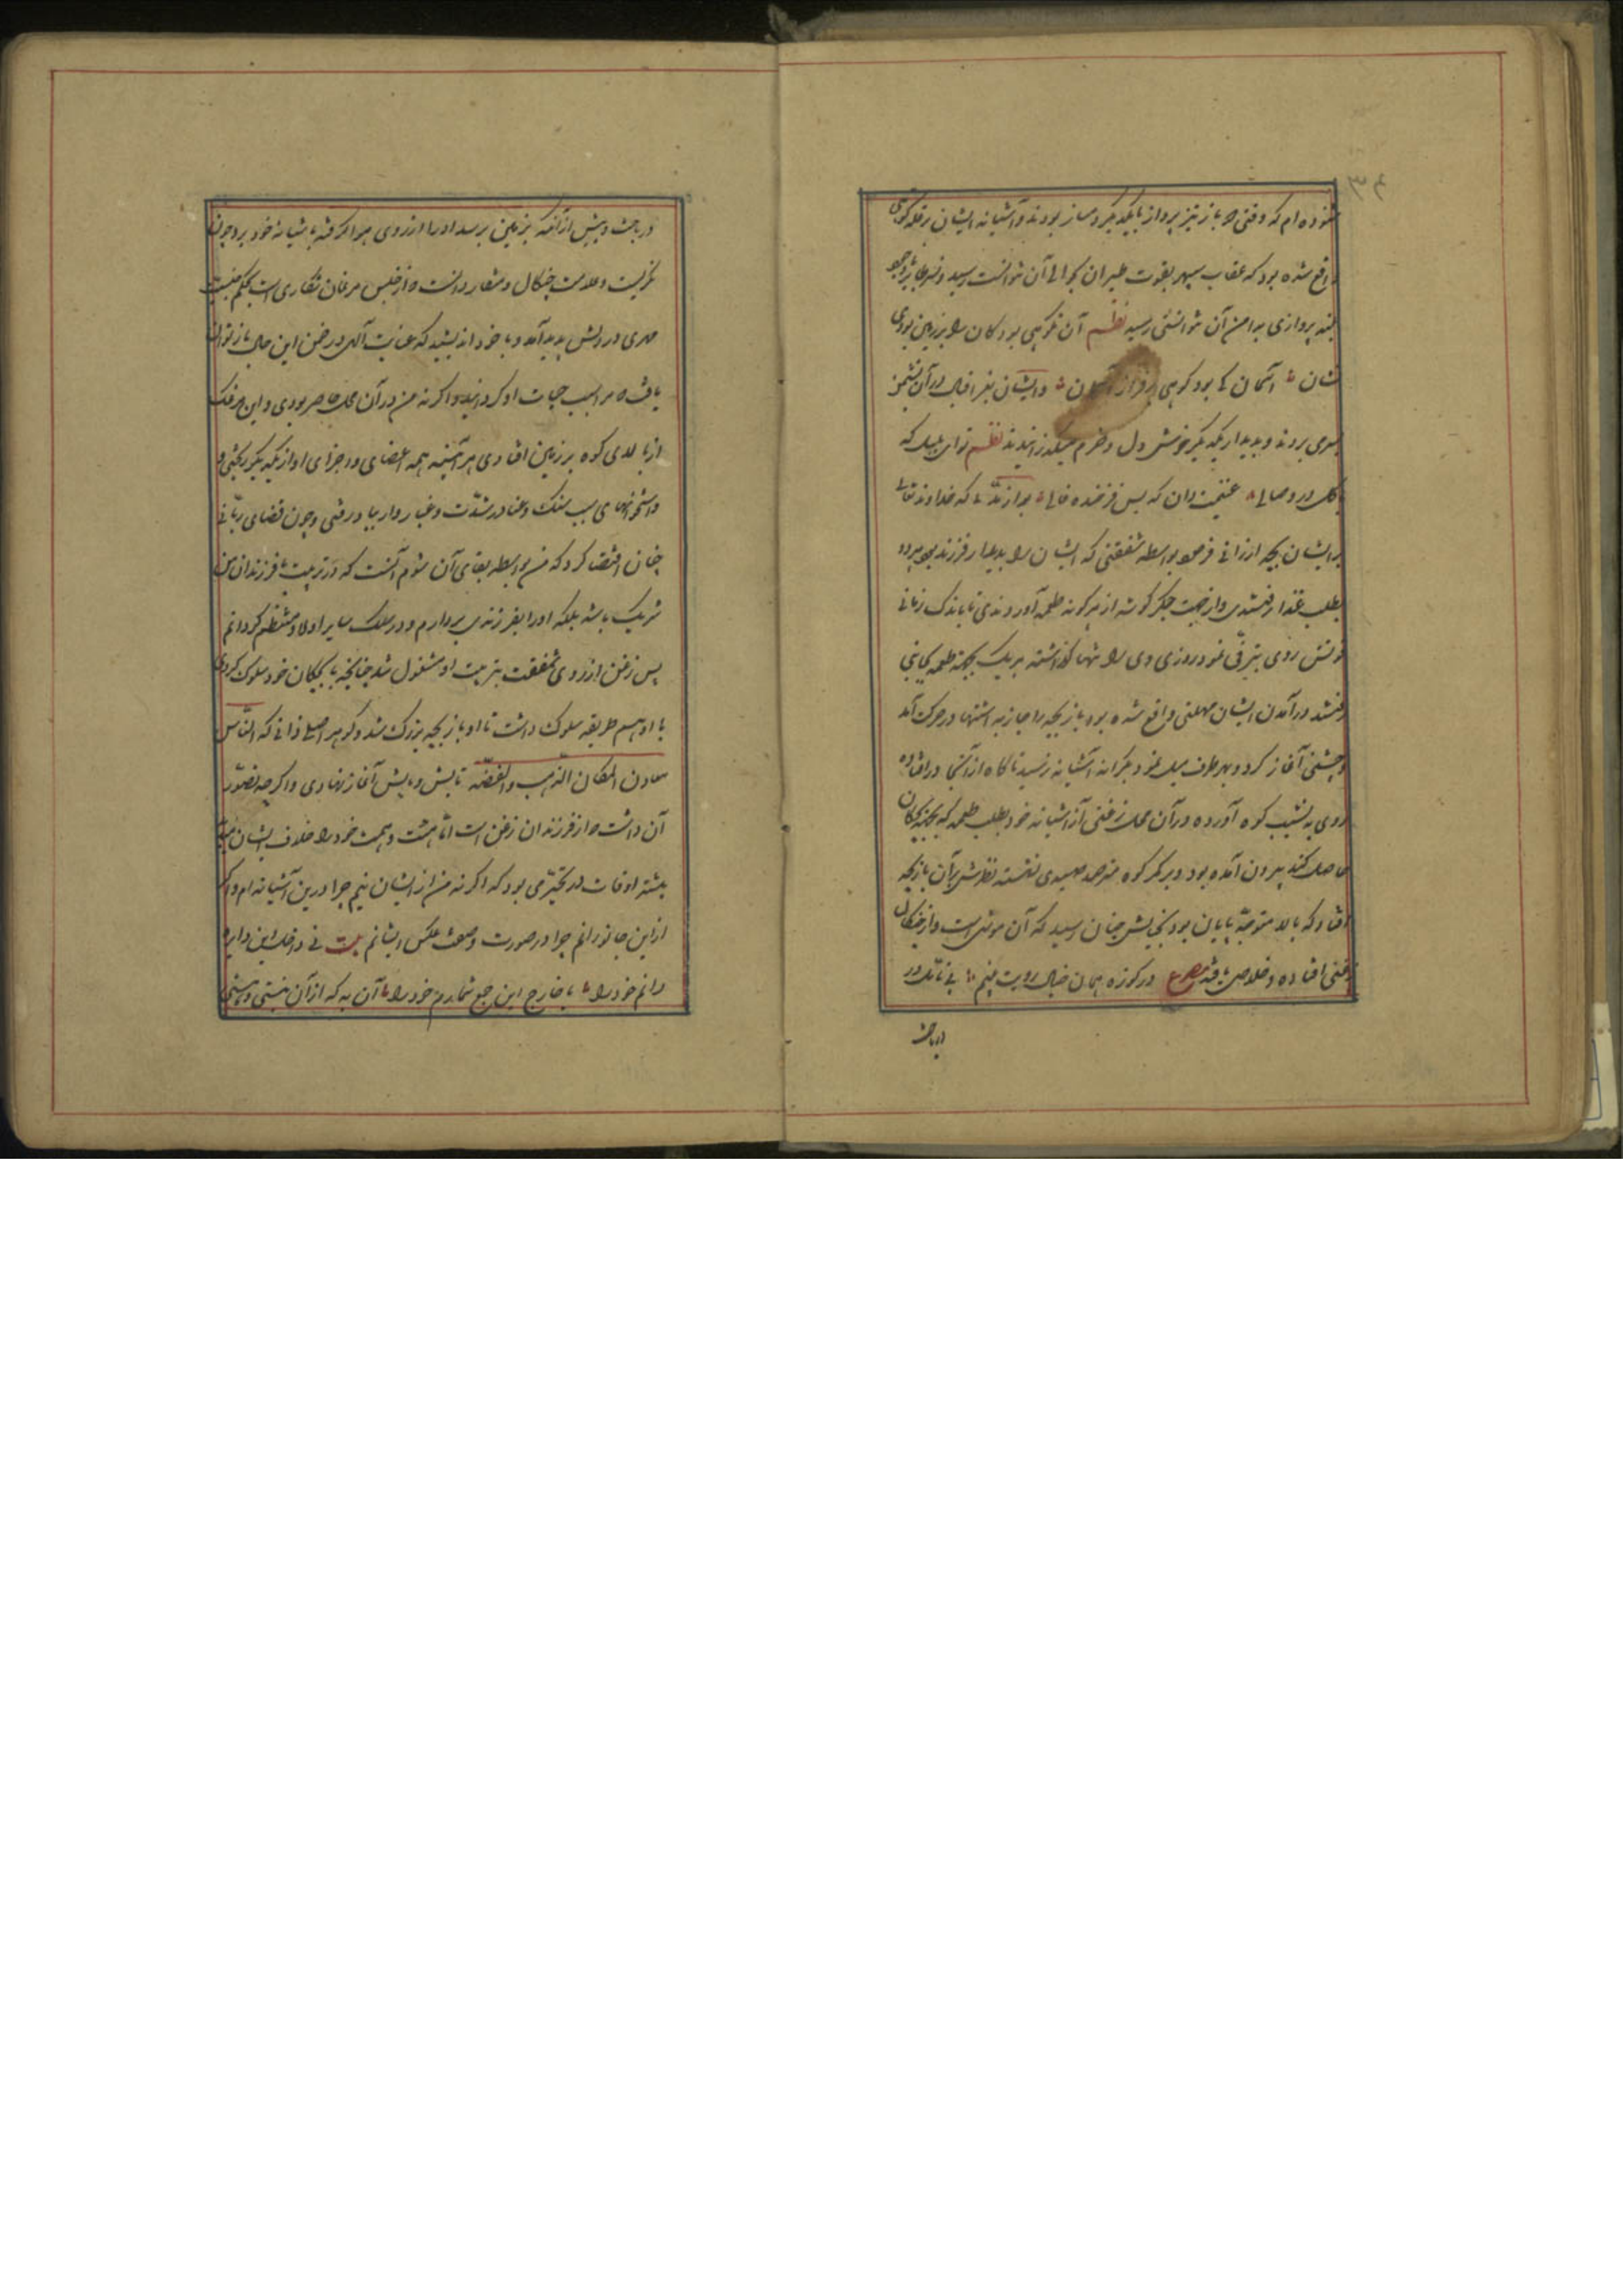 ۳۴
شنوده ام که وقتی دو باز تیز پرواز با یکدیگر دمساز بودند و آشیانه ایشان بر قله کوهی
واقع شده بود که عقاب سپهر بقوت طیران بحوالی آن نتوانست رسید و نسر طایر با وجود
بلند پروازی بدامن آن نتوانستی رسید نظم آن نه کوهی بود کان را بر زمین بودی
نشان آسمان کا بود کوهی بر فراز آسمان وایشان بفراقبال در آن نشیمن
بسر می بردند و بدیدار یکدیگر خوش دل و خرم میگذرانیدند نظم تو ای بلبل که
با گل در وصالی غنیمت دان که بس فرخنده فالی بعد از مدتی که خداوند تعالی
بر ایشان بچه ارزانی فرمود بواسطه شفقتی که ایشان را بدیدار فرزند بود هر دو
بطلب غذا رفتندی و از جهت جگر گوشه از هر گونه طعمه آوردندی تا باندک زمانی
قوتش روی بترقی نمود روزی وی را تنها گذاشته هر یک بجهة طعمه بجانبی
رفتند در آمدن ایشان مهلتی واقع شده بود باز بچه را جاذبه اشتها در حرکت آمد
و جستنی آغاز کرد و بهر طرف میل نمود بکرانه آشیانه رسید ناگاه از آنجا در افتاده
روی به نشیب کوه آورده در آن محل زغنی از آشیانه خود بطلب طعمه که بجهة بچگان
حاصل کند بیرون آمده بود و بر کمر کوه مترصد صیدی نشسته نظرش بر آن باز بچه
افتاد که بالا متوجه پایان بود بخیالش چنان رسید که آن موشی است و از چنگال
زغنی افتاده و خلاص یافته مصرع در کوزه همان خیال رویت بینم بی تامل در
دریافت
دریافت و پیش از آنکه بزمین برسد او را از روی هوا گرفته بآشیانه خود برد چون
نگریست و علامت چنگال و منقار دانست که از جنس مرغان شکاری است بحکم جنسیت
مهری در دلش پدید آمد و با خود اندیشید که عنایت الهی در ضمن این حال باز توان
یافت که مرا سبب حیات او گردانید و اگر نه من در آن محل حاضر بودی و این مرغک
از بالای کوه بر زمین افتادی هر آئینه همه اعضای و اجزای او از یکدیگر ریختی و
و استخوانهای بسبب سنگ و عنا در شدت و غبار وار بباد رفتی و چون قضای ربانی
چنان اقتضا کرد که من بواسطه بقای آن شوم آنست که در تربیت با فرزندان من
شریک باشد بلکه او را بفرزندی بردارم و در سلک سایر اولاد منتظم گردانم
پس زغن از روی شفقت بتربیت او مشغول شد چنانچه با بچگان خود سلوک کردی
با او هم طریقه سلوک داشت تا او باز بچه بزرگ شد و گوهر اصلی ذاتی که الناس
معادن کمعادن الذهب والفضه تابش و نمایش آغاز نهادی و اگرچه تصور
آن داشت که از فرزندان زغن است اما هیئت و همت خود را خلاف ایشان می
بیشتر اوقات در تحیر می بود که اگر نه من از ایشان نیم چرا درین آشیانه ام و اگر
از این جانورانم چرا در صورت و صفت عکس ایشانم بیت نی داخل این دایره
دانم خود را یا خارج این جمع شمارم خود را آن به که از آن نیستی و هستی